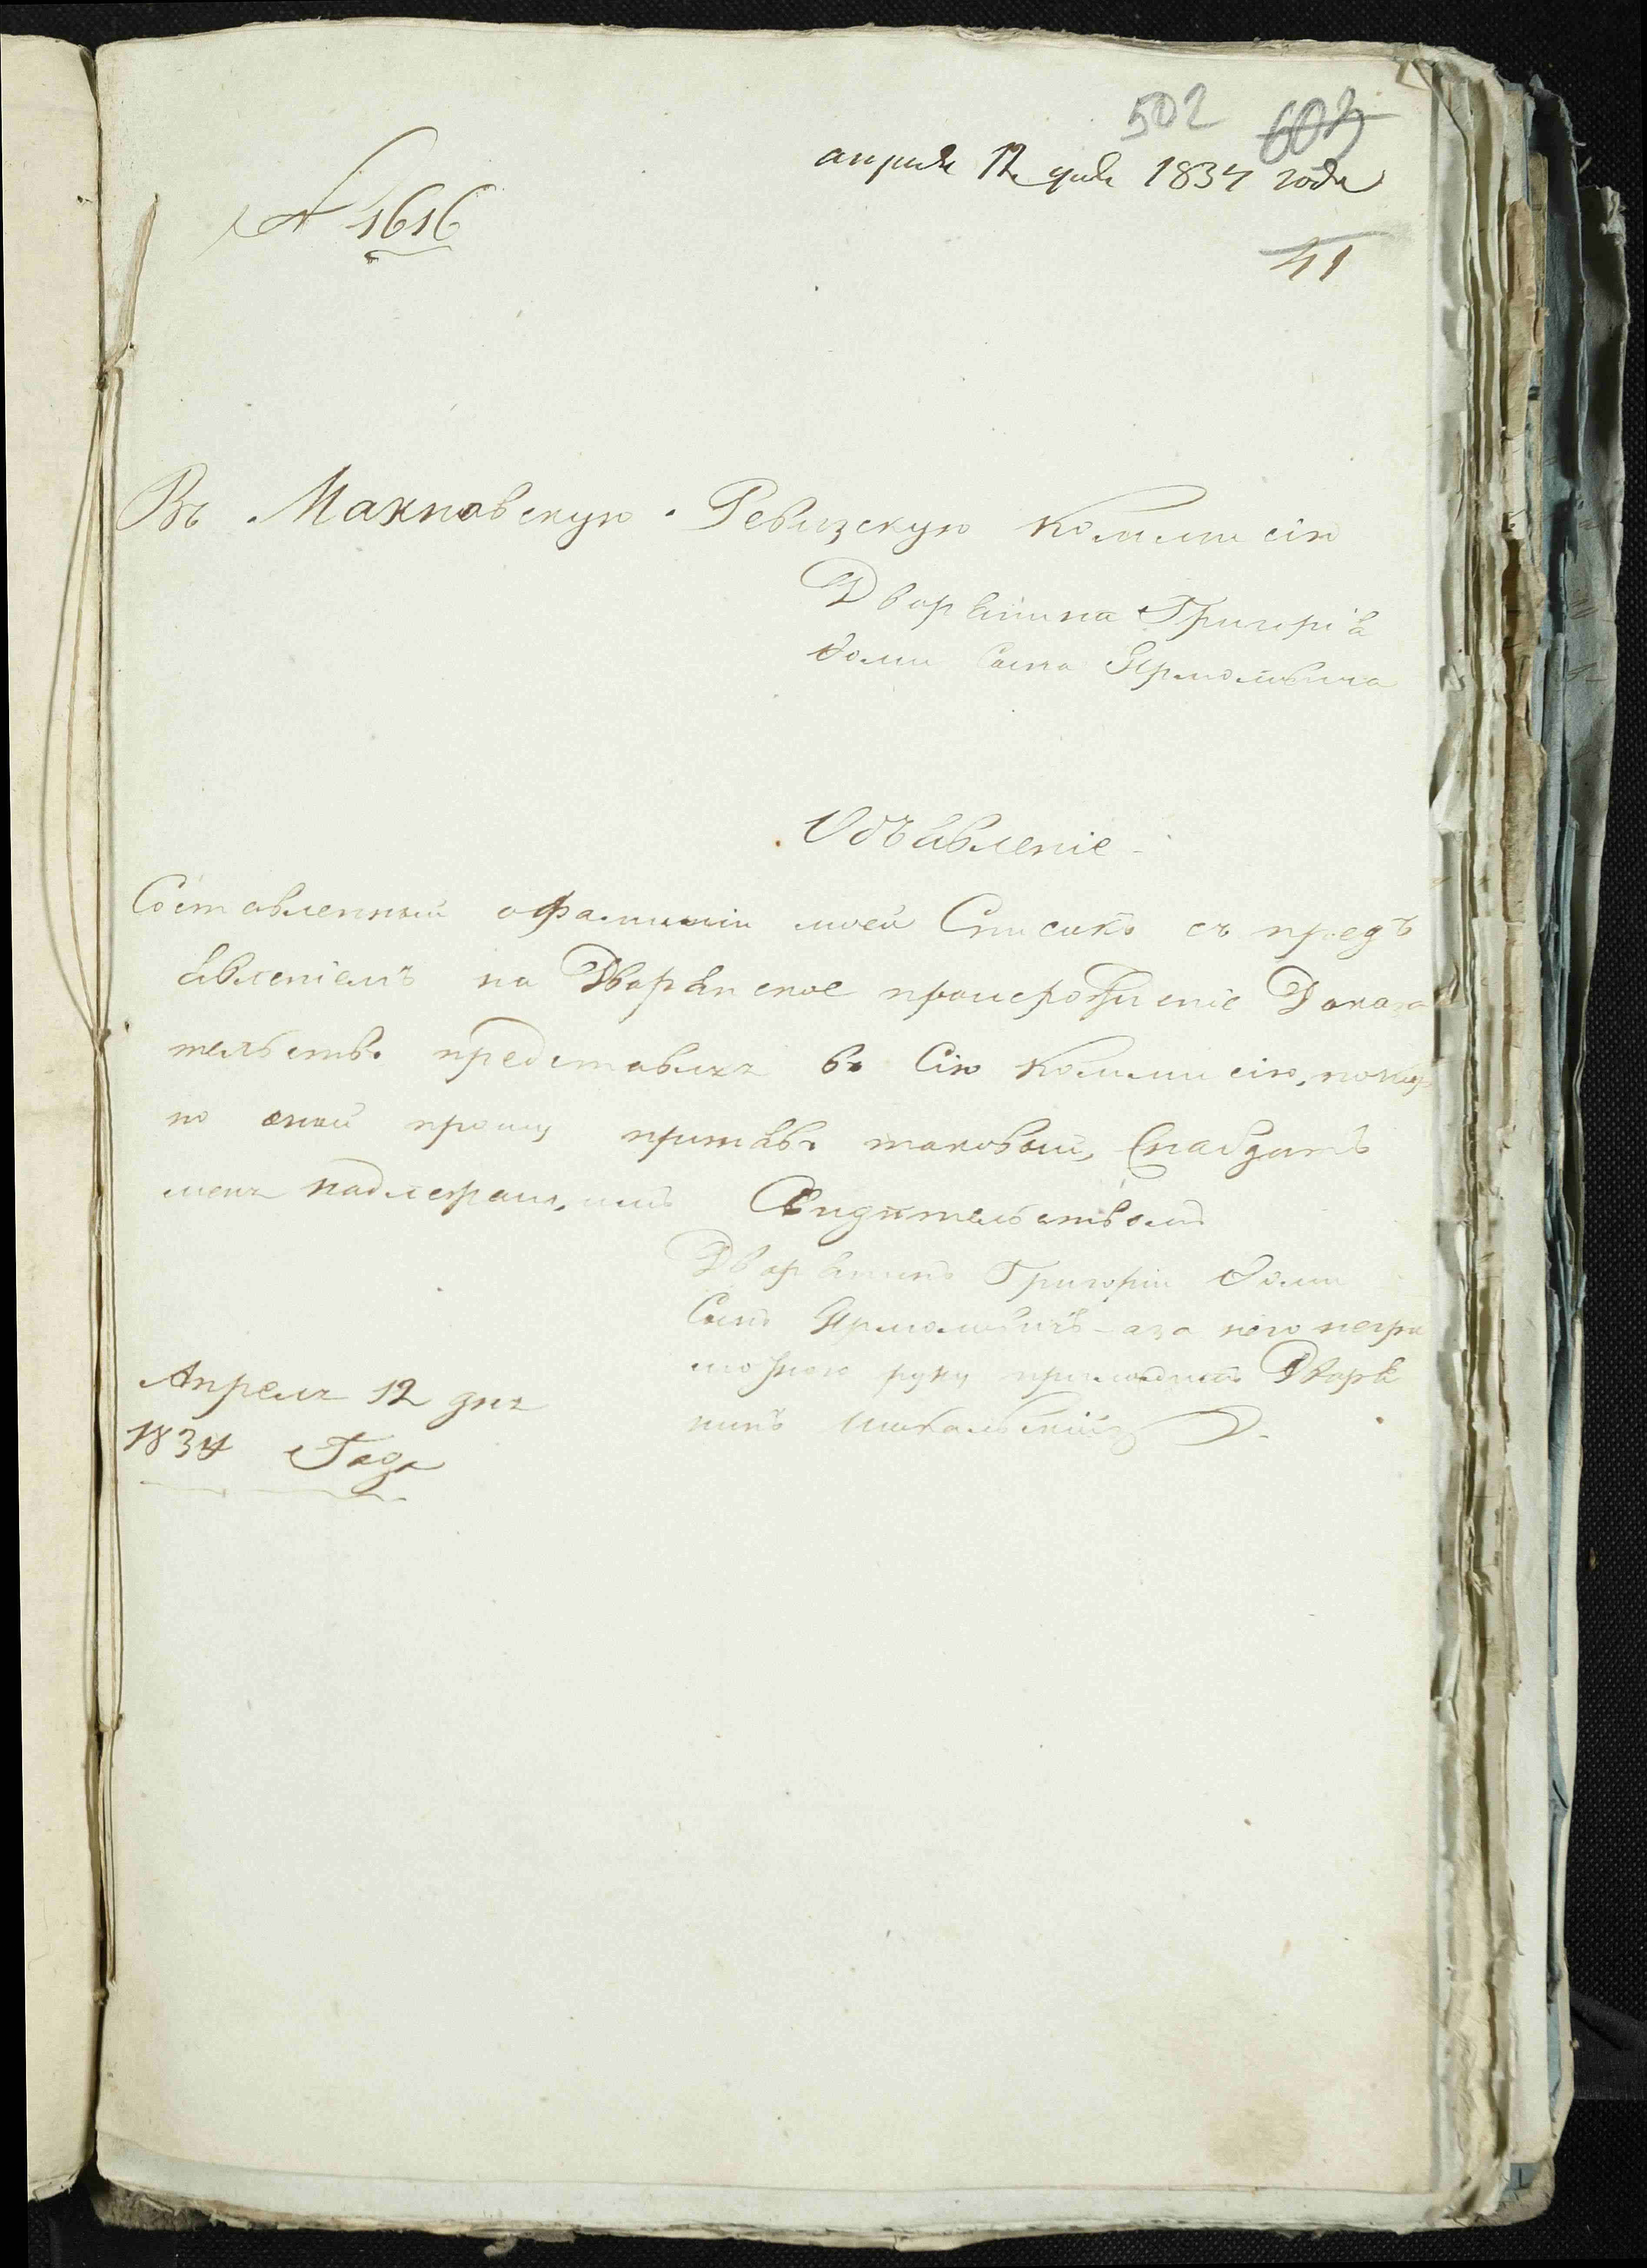 502 603
апреля 12 дня 1834 года
№ 1616
41
Въ Махновскую Ревизскую Коммисію
Дворянина Григорія
Фоми Сына Ярмоловича
Объявленіе
Составленный о фамиліи моей Списокъ съ предъ
явленіемъ на Дворянское происрожденіе Доказа
тельствъ представляя въ Сію Коммисію, покор
но оной прошу принявъ таковый, Снабдить
меня надлежащимъ Свидѣтельствомъ
Дворянинъ Григорій Фоми
Сынъ Ярмоловичъ а за него негра
мотного руку приложилъ Дворя
нинъ
Апреля 12 дня
1834 Года